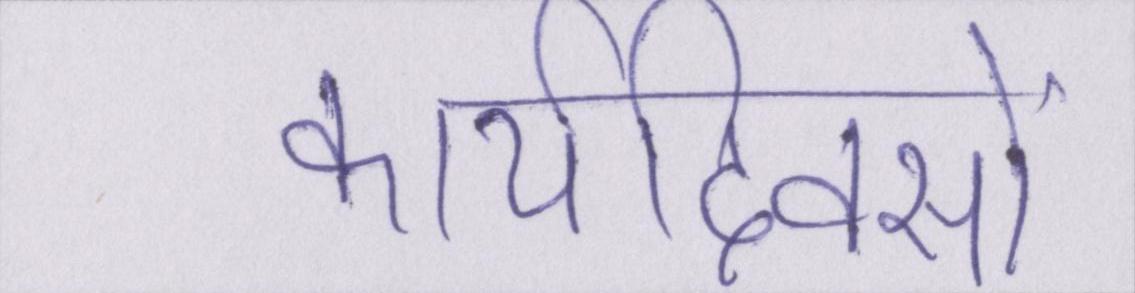 कार्यदिवसों